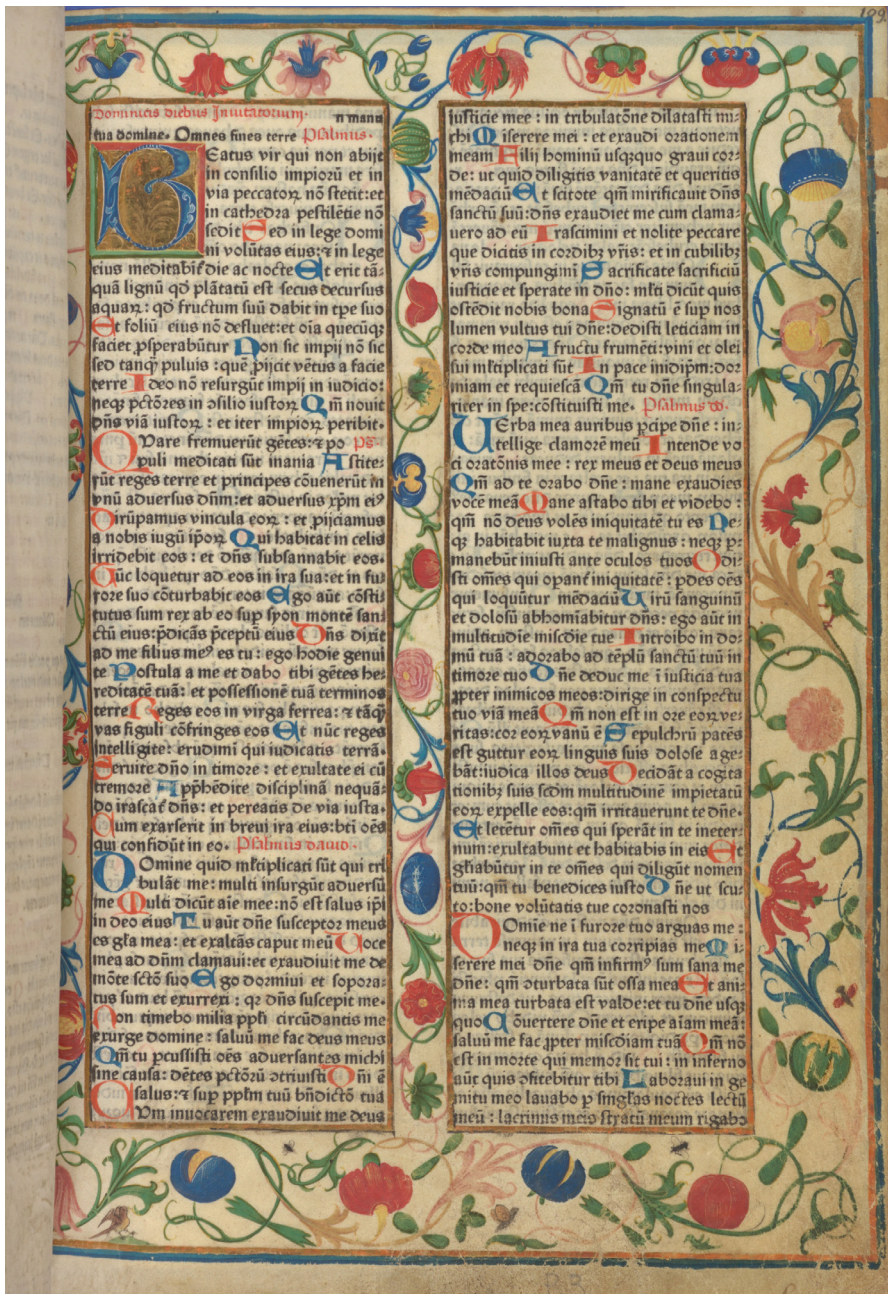 109
Dominicis diebus Inuitatorium. n manu
tua domine. Omnes fines terre Psalmus.
BEatus vir qui non abijt
in consilio impiorū et in
via peccatoꝝ nō stetit: et
in cathedra pestilētie nō
sedit Sed in lege domi
ni volūtas eius: ⁊ in lege
eius meditabit̄ die ac nocte Et erit tā⸗
quā lignū qd̄ plātatū est secus decursus
aquaꝝ: qd̄ fructum suū dabit in tꝑe suo
Et foliū eius nō defluet: et oīa quecūqꝫ
faciet ꝓsperabūtur Non sic impij nō sic
sed tanqꝫ̄ puluis: quē ꝓijcit vētus a facie
terre Ideo nō resurgūt impij in iudicio:
neqꝫ pctōres in ↄsilio iustoꝝ Qm̄ nouit
dn̄s viā iustoꝝ: et iter impioꝝ peribit.
QVare fremuerūt gētes: ⁊ po Ps̄
puli meditati sūt inania Astite⸗
rūt reges terre et principes cōuenerūt in
vnū aduersus dn̄m: et aduersus xp̄m eiꝰ
Dirūpamus vincula eoꝝ: et ꝓijciamus
a nobis iugū ip̄oꝝ Qui habitat in celis
irridebit eos: et dn̄s subsannabit eos.
Tūc loquetur ad eos in ira sua: et in fu⸗
rore suo cōturbabit eos Ego aūt cōsti⸗
tutus sum rex ab eo suꝑ syon montē san⸗
ctū eius: p̄dicās p̄ceptū eius Dn̄s dixit
ad me filius meꝰ es tu: ego hodie genui
te Postula a me et dabo tibi gētes he⸗
reditatē tuā: et possessionē tuā terminos
terre Reges eos in virga ferrea: ⁊ tāqꝫ̄
vas figuli cōfringes eos Et nūc reges
intelligite: erudimī qui iudicatis terrā.
Seruite dn̄o in timore: et exultate ei cū
tremore Appħēdite disciplinā nequā⸗
do irascat̄ dn̄s: et pereatis de via iusta.
Cum exarserit in breui ira eius: bt̄i oēs
qui confidūt in eo. Psalmus dauid.
DOmine quid mł̄tiplicati sūt qui tri
bulāt me: multi insurgūt aduersū
me Multi dicūt aīe mee: nō est salus ip̄i
in deo eius Tu aūt dn̄e susceptor meus
es gła mea: et exaltās caput meū Uoce
mea ad dn̄m clamaui: et exaudiuit me de
mōte sctō suo Ego dormiui et sopora⸗
tus sum et exurrexi: qꝛ dn̄s suscepit me.
Non timebo milia ppłi circūdantis me
exurge domine: saluū me fac deus meus
Qm̄ tu ꝑcussisti oēs aduersantes michi
sine causa: dētes pctōrū ↄtriuisti Dn̄i ē
salus: ⁊ suꝑ ppłm tuū bn̄dictō tua
CVm inuocarem exaudiuit me deus
iusticie mee: in tribulatōne dilatasti mi⸗
chi Miserere mei: et exaudi orationem
meam Filij hominū usqꝫquo graui cor⸗
de: ut quid diligitis vanitatē et queritis
mēdaciū Et scitote qm̄ mirificauit dn̄s
sanctū suū: dn̄s exaudiet me cum clama⸗
uero ad eū Irascimini et nolite peccare
que dicitis in cordibꝫ vr̄is: et in cubilibꝫ
vr̄is compungimī Sacrificate sacrificiū
iusticie et sperate in dn̄o: mł̄ti dicūt quis
ostēdit nobis bona Signatū ē suꝑ nos
lumen vultus tui dn̄e: dedisti leticiam in
corde meo A fructu frumēti: vini et olei
sui mł̄tiplicati sūt In pace inidip̄m: dor
miam et requiescā Qm̄ tu dn̄e singula⸗
riter in spe: cōstituisti me. Psalmus dd.
UErba mea auribus ꝑcipe dn̄e: in⸗
tellige clamorē meū Intende vo
ci oratōnis mee: rex meus et deus meus
Qm̄ ad te orabo dn̄e: mane exaudies
vocē meā Mane astabo tibi et videbo:
qm̄ nō deus volēs iniquitatē tu es Ne⸗
qꝫ habitabit iuxta te malignus: neqꝫ ꝑ⸗
manebūt iniusti ante oculos tuos Odi⸗
sti om̄es qui opant̄ iniquitatē: ꝑdes oēs
qui loquūtur mēdaciū Uirū sanguinū
et dolosū abhomīabitur dn̄s: ego aūt in
multitudīe miscdīe tue Introibo in do⸗
mū tuā: adorabo ad tēplū sanctū tuū in
timore tuo Dn̄e deduc me ī iusticia tua
ꝓpter inimicos meos: dirige in conspectu
tuo viā meā Qm̄ non est in ore eoꝝ ve⸗
ritas: cor eoꝝ vanū ē Sepulchrū patēs
est guttur eoꝝ linguis suis dolose age⸗
bāt: iudica illos deus Decidāt a cogita
tionibꝫ suis scdm̄ multitudinē impietatū
eoꝝ expelle eos: qm̄ irritauerunt te dn̄e.
Et letētur om̄es qui sperāt in te ineter⸗
num: exultabunt et habitabis in eis Et
głiabūtur in te om̄es qui diligūt nomen
tuū: qm̄ tu benedices iusto Dn̄e ut scu⸗
to: bone volūtatis tue coronasti nos
DOmīe ne ī furore tuo arguas me:
neqꝫ in ira tua corripias me Mi⸗
serere mei dn̄e qm̄ infirmꝰ sum sana me
dn̄e: qm̄ ↄturbata sūt ossa mea Et ani⸗
ma mea turbata est valde: et tu dn̄e usqꝫ
quo Cōuertere dn̄e et eripe aīam meā:
saluū me fac ꝓpter miscdīam tuā Qm̄ nō
est in morte qui memor sit tui: in inferno
aūt quis ↄfitebitur tibi Laboraui in ge
mitu meo lauabo ꝑ singłas noctes lectū
meū: lacrimis meis stratū meum rigabo